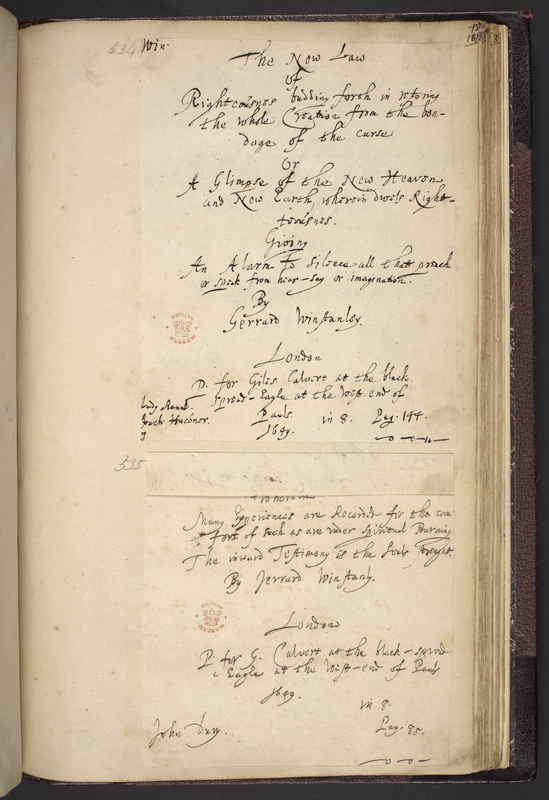 534 Win.
The New Law
of
Righteousnes budding forth in restoring
the whole Creation from the bon-
dage of the curse
Or
A Glimpse of the New Heaven
and New Earth, wherein dwels Right-
teousnes.
Giving
An Alarm to silence all that preach
or speak from hear-say or imagination.
By
Gerrard Winstanley.
London
P. for Giles Calvert at the black
spread-Eagle at the West end of
Pauls.
1649. in 8. Pag. 144.
535
wherein
Many Experiences are Recorded for the com
fort of such as are under spiritual Burning
The inward Testimony is the Souls strenght.
By Jerrard Winstanly.
BRITISH MUSEUM
London
P. for G. Calvert at the black-spred
Eagle at the West-end of Pauls.
1649.
in 8.
Pag. 85.
John Dury.